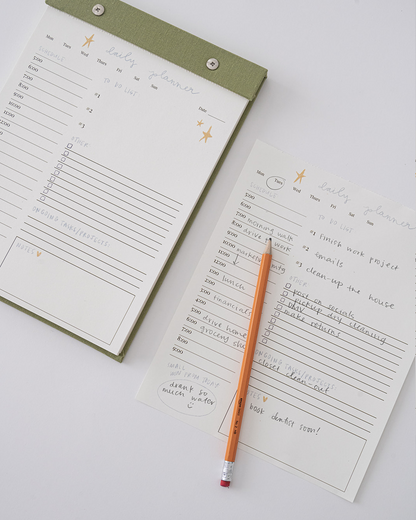 Mon Tues Wed Thur Fri Sat Sun
daily planner
SCHEDULE
TO DO LIST
Date
6:00
7:00
8:00
9:00
10:00
11:00
12:00
1:00
2:00
3:00
4:00
#1
#2
#3
OTHER:
ONGOING TASKS/PROJECTS:
NOTES
Mon Tues Wed Thur Fri Sat Sun
daily planner
SCHEDULE
TO DO LIST
5:00
6:00
7:00 morning walk
8:00 drive to work
9:00
10:00 marketing mtg
11:00
12:00
1:00 lunch
2:00
3:00 financials
4:00
5:00 drive home
6:00 grocery
7:00
8:00
9:00
#1 finish work project
#2 emails
#3 clean up the house
OTHER:
post on socials
pick-up dry cleaning
pay
make returns
ONGOING TASKS/PROJECTS:
closet clean-out
drank so
much water
NOTES
book dentist soon!